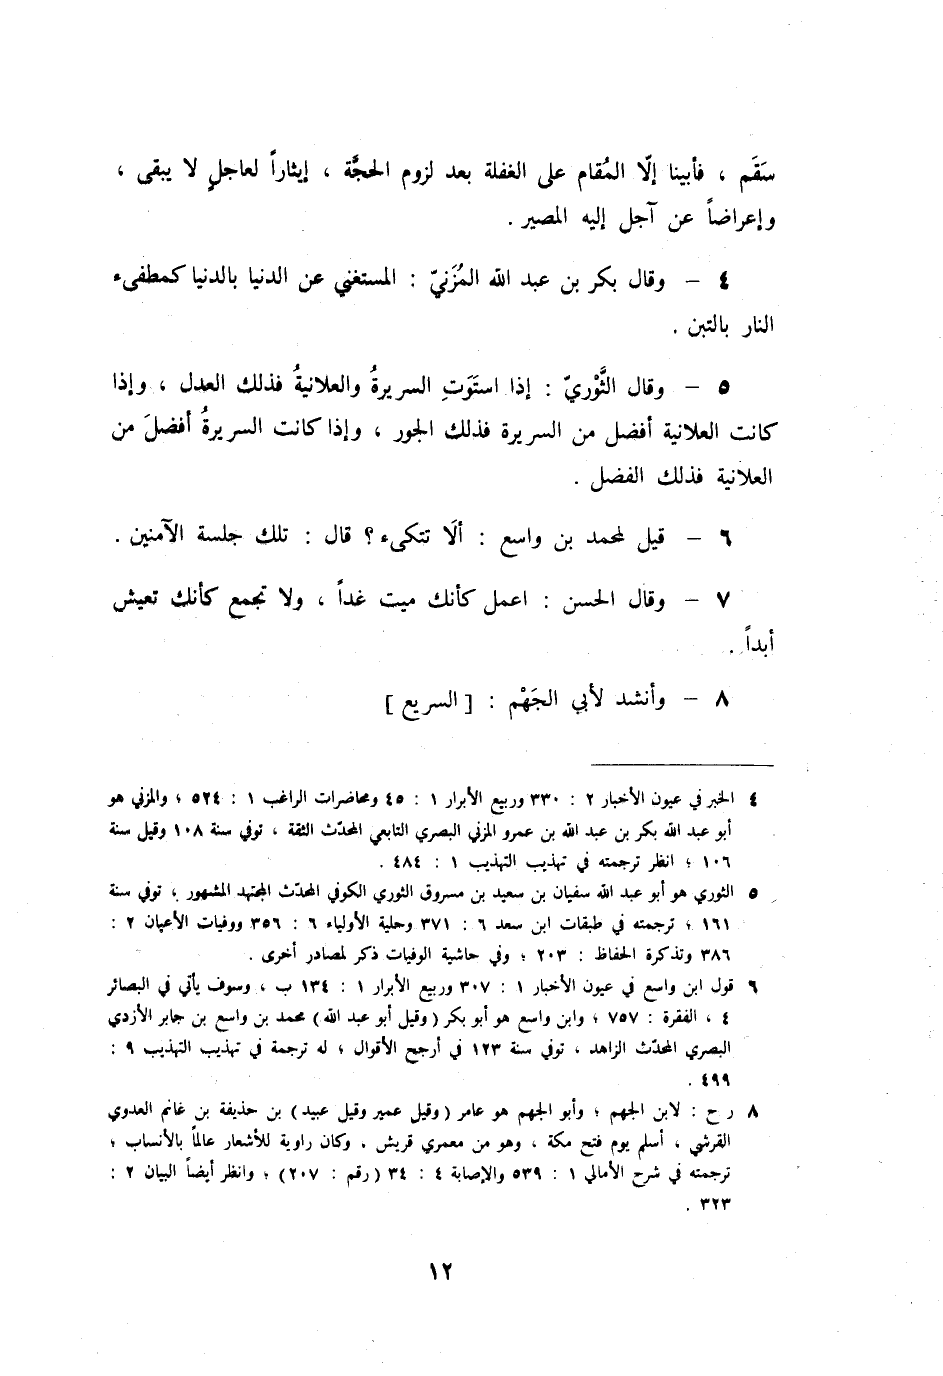 سَقَم ، فأبينا إلّا المُقام على الغفلة بعد لزوم الحجَّة ، إيثاراً لعاجلٍ لا يبقى ،
وإعراضاً عن آجل إليه المصير .
٤ – وقال بكر بن عبد الله المُزَنيّ : المستغني عن الدنيا بالدنيا كمطفىء
النار بالتبن .
٥ – وقال الثَّوْريّ : إذا استَوَتِ السريرةُ والعلانيةُ فذلك العدل ، وإذا
كانت العلانية أفضل من السريرة فذلك الجور ، وإذا كانت السريرةُ أفضلَ من
العلانية فذلك الفضل .
٦ – قيل لمحمد بن واسع : ألَا تتكىء ؟ قال : تلك جلسة الآمنين .
٧ – وقال الحسن : اعمل كأنك ميت غداً ، ولا تجمع كأنك تعيش
أبداً .
٨ – وأنشد لأبي الجَهْم : [ السريع ]
٤ الخبر في عيون الأخبار ٢ : ٣٣٠ وربيع الأبرار ١ : ٤٥ ومحاضرات الراغب ١ : ٥٢٤ ؛ والمزني هو
أبو عبد الله بكر بن عبد الله بن عمرو المزني البصري التابعي المحدّث الثقة ، توفي سنة ١٠٨ وقيل سنة
١٠٦ ؛ انظر ترجمته في تهذيب التهذيب ١ : ٤٨٤ .
٥ الثوري هو أبو عبد الله سفيان بن سعيد بن مسروق الثوري الكوفي المحدّث المجتهد المشهور ، توفي سنة
١٦١ ؛ ترجمته في طبقات ابن سعد ٦ : ٣٧١ وحلية الأولياء ٦ : ٣٥٦ ووفيات الأعيان ٢ :
٣٨٦ وتذكرة الحفاظ : ٢٠٣ ؛ وفي حاشية الوفيات ذكر لمصادر أخرى .
٦ قول ابن واسع في عيون الأخبار ١ : ٣٠٧ وربيع الأبرار ١ : ١٣٤ ب ، وسوف يأتي في البصائر
٤ ، الفقرة : ٧٥٧ ؛ وابن واسع هو أبو بكر ( وقيل أبو عبد الله ) محمد بن واسع بن جابر الأزدي
البصري المحدّث الزاهد ، توفي سنة ١٢٣ في أرجح الأقوال ؛ له ترجمة في تهذيب التهذيب ٩ :
٤٩٩ .
٨ ر ح : لابن الجهم ؛ وأبو الجهم هو عامر ( وقيل عمير وقيل عبيد ) بن حذيفة بن غانم العدوي
القرشي ، أسلم يوم فتح مكة ، وهو من معمري قريش ، وكان راوية للأشعار عالماً بالأنساب ؛
ترجمته في شرح الأمالي ١ : ٥٣٩ والإصابة ٤ : ٣٤ ( رقم : ٢٠٧ ) ؛ وانظر أيضاً البيان ٢ :
٣٢٣ .
١٢